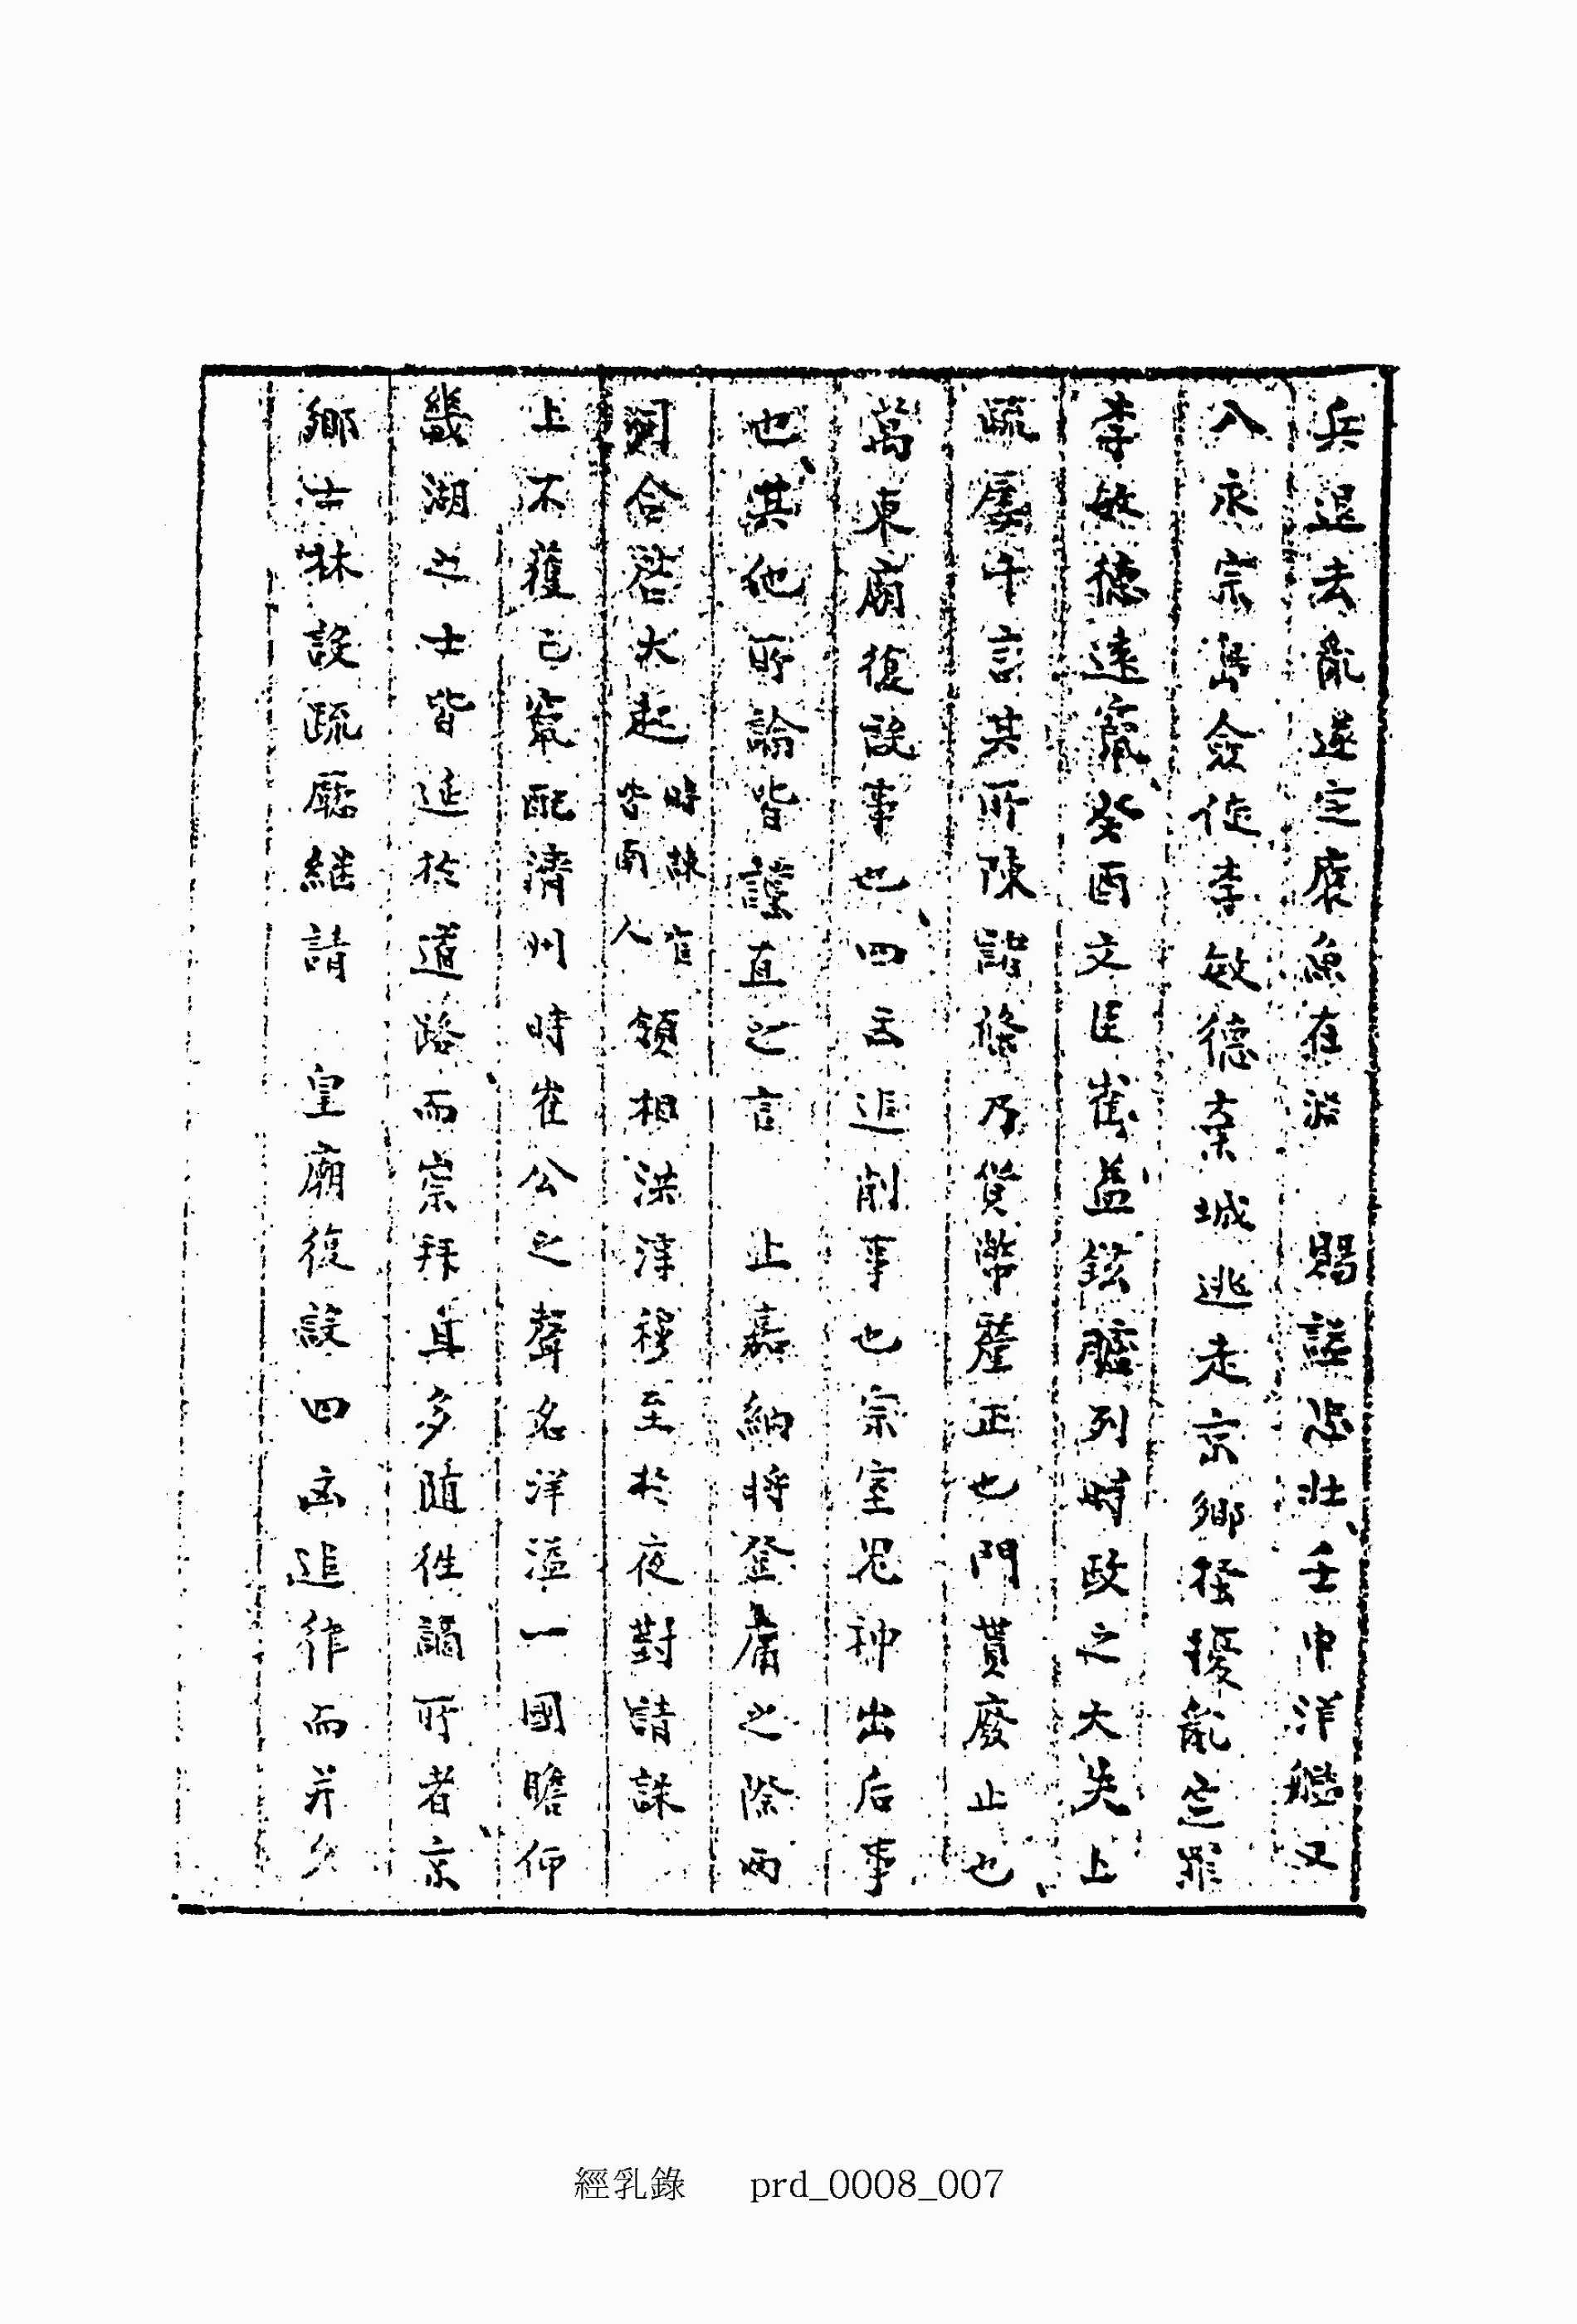 兵退去亂遂定麋魚在淵 賜謚忠壯壬申洋艦又
入永宗島僉使李敏德棄城逃走京鄉擾亂定罪
李敏德遠竄癸酉文臣崔益鉉臚列時政之大失上
疏屢千言其所陳諸條乃貨幣釐正也門貰廢止也
萬東廟復設事也四臣追削事也宗室兄神出后事
也其他所論皆謹直之言 上嘉納將登庸之際兩
司合啓大起時諫官皆南人領相洪淳穆至於夜對請誅
上不獲已竄配濟州時崔公之聲名洋溢一國瞻仰
畿湖之士皆迎於道路而崇拜耳多隨往謫所者京
鄉士林設疏廳繼請 皇廟復設四凶追律而并久
經乳錄 prd_0008_007